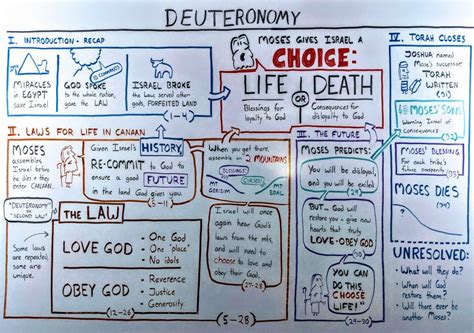 DEUTERONOMY
I. INTRODUCTION + RECAP
MIRACLES
in EGYPT
save Israel
10 COMMANDS
GOD SPOKE
to the whole nation,
gave the LAW
ISRAEL BROKE
the Laws several other
gods, FORFEITED LAND
(1-4)
MOSES GIVES ISRAEL A
CHOICE:
LIFE
OR
DEATH
Blessings for
loyalty to God
Consequences for
disloyalty to God
IV. TORAH CLOSES
JOSHUA named
Moses's successor
TORAH
WRITTEN
(31)
MOSES' SONG
Warning Israel of
consequences
(32)
MOSES' BLESSING
For each tribe's
future prosperity
(33)
MOSES DIES
(34)
UNRESOLVED:
• What will they do?
• When will God
restore them?
• Will there ever be
another Moses?
II. LAWS FOR LIFE IN CANAAN
MOSES
assembles
Israel before
he dies + they
enter CANAAN.
Given Israel's HISTORY,
RE-COMMIT to God to
ensure a good FUTURE
in the land God gives you.
(5-11)
When you get there,
assemble on 2 MOUNTAINS
BLESSINGS!
CURSES!
MT
GERIZIM
MT
EBAL
Israel will once
again hear God's
laws from the mts,
and will need to
choose to love and
obey their God.
(27-28)
"DEUTERONOMY"
= "SECOND LAW"
Some laws
are repeated,
some are
unique.
THE LAW
LOVE GOD
• One God
• One "place"
• No idols
OBEY GOD
• Reverence
• Justice
• Generosity
(12-26)
(5-28)
III. THE FUTURE
MOSES PREDICTS:
You will be disloyal,
and you will be exiled.
(29)
BUT... God will
restore you + give new
hearts that truly
LOVE + OBEY GOD
(30)
"YOU CAN
DO THIS.
CHOOSE
LIFE!"
(29-30)